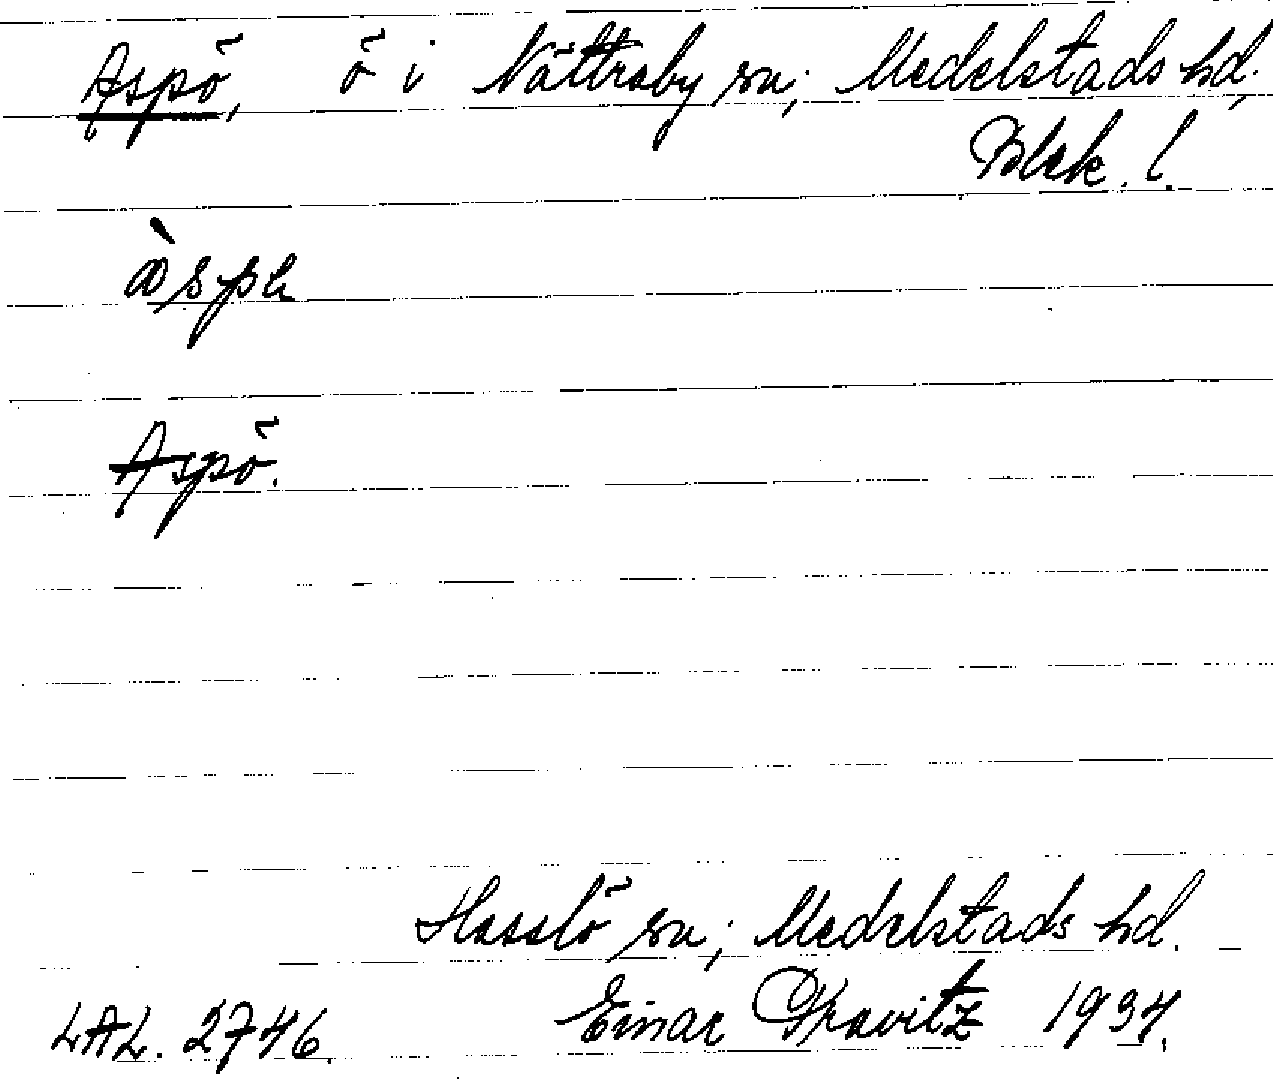 Aspö, ö i Nättraby sn; Medelstads hd.,
Blek. l.
Aspö.
Hasslö sn; Medelstads hd.
LAL. 2746. Einar 1934.